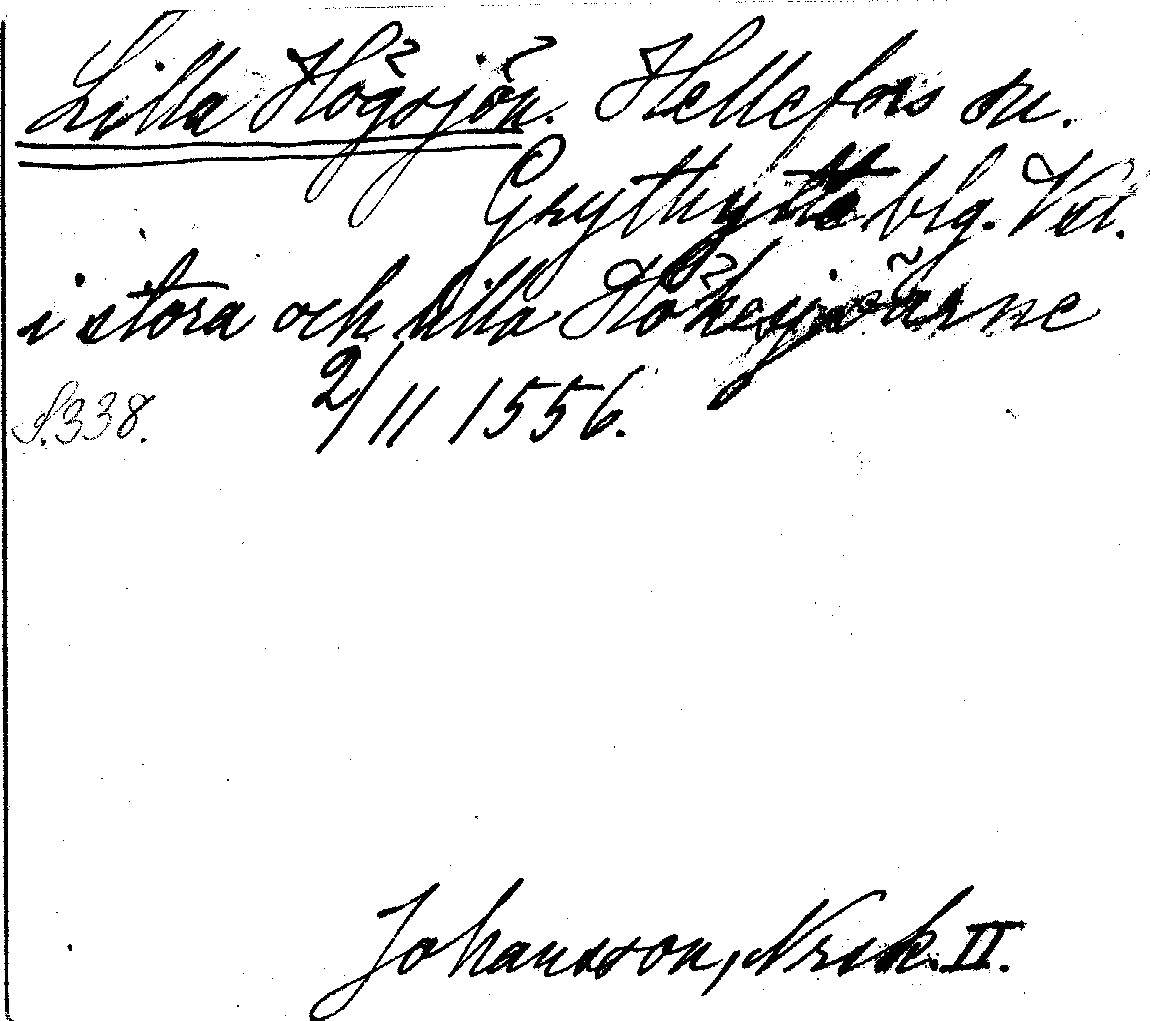 Lilla Högsjön. Hellefors sn.
Grythytte blg. Vstl.
i stora och lilla Hökesjöarne
S. 338. 2/11 1556.
Johansson, Noraskog. II.